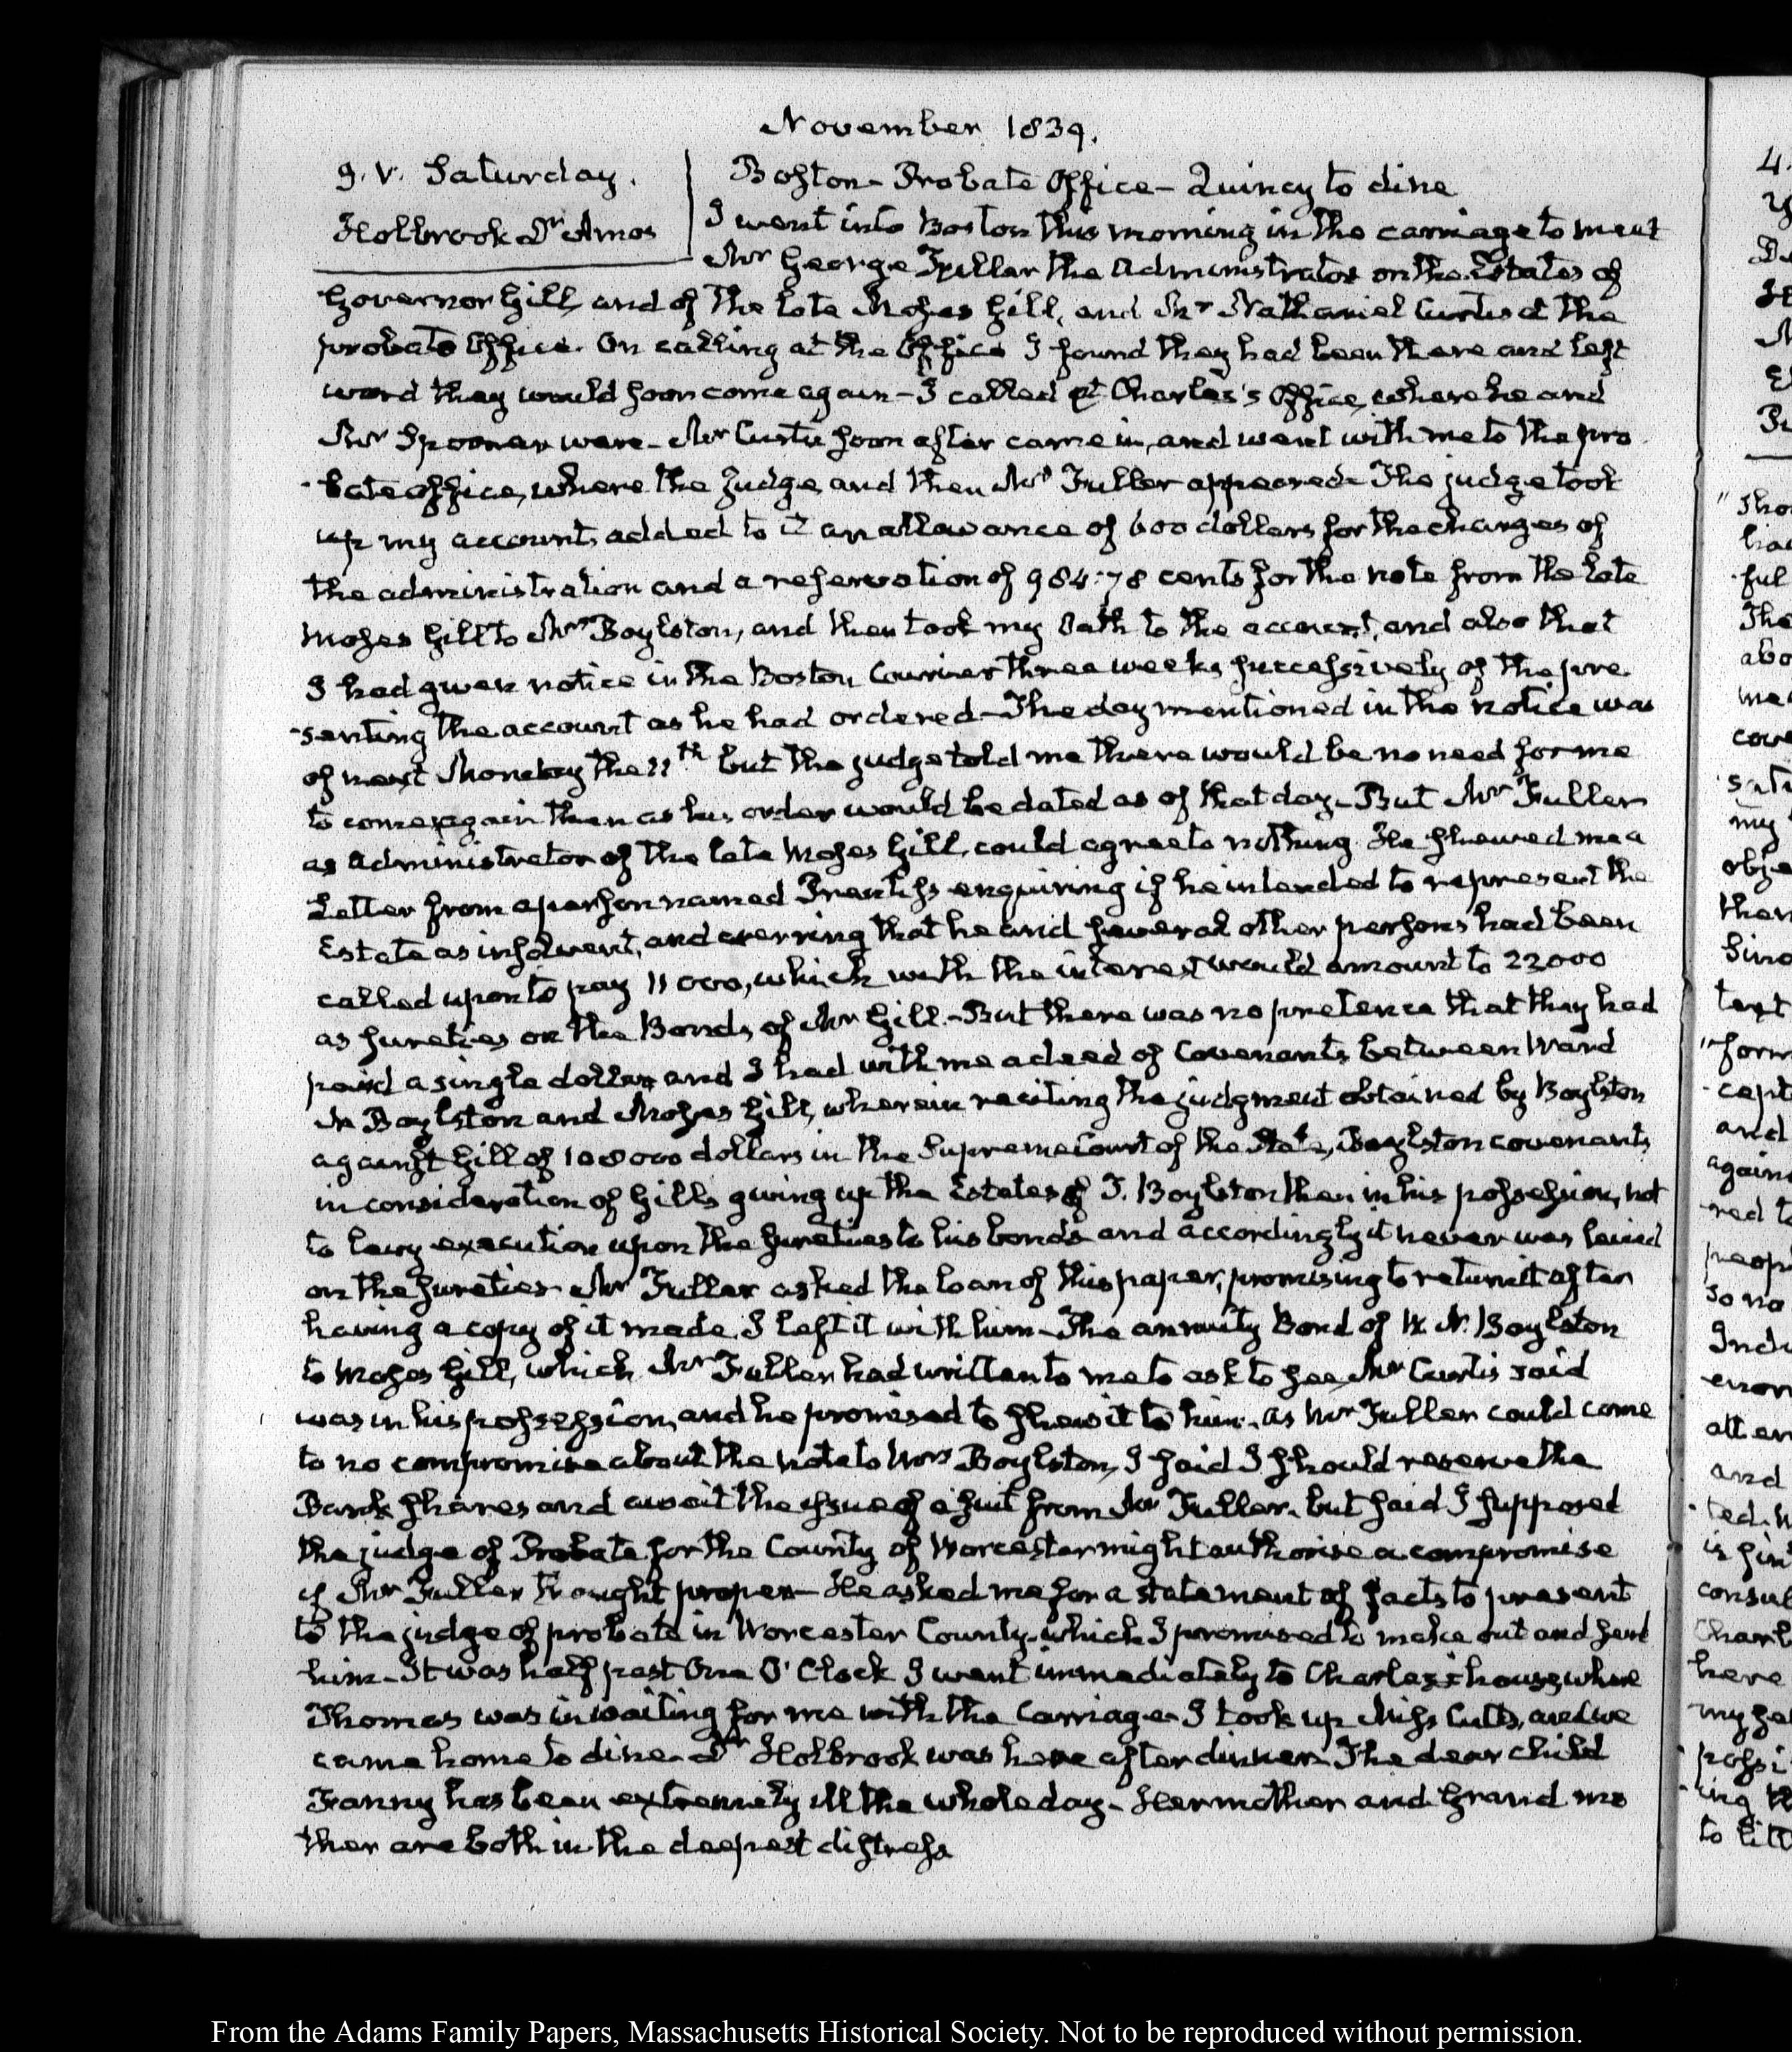 November 1839.
9. V. Saturday.
Holbrook Dr Amos
Boston - Probate Office - Quincy to dine
I went into Boston this morning in the carriage to meet
Mr George Fuller the Administrator on the Estates of
Governor Gill, and of the late Moses Gill, and Mr Nathaniel Curtis at the
probate Office. On calling at the Office I found they had been there and left
word they would soon come again - I called at Charles's Office, where he and
Mr Spooner were - Mr Curtis soon after came in, and went with me to the pro
-bate office, where the Judge, and then Mr Fuller appeared - The judge took
up my account, added to it an allowance of 600 dollars for the charges of
the administration and a reservation of 984:78 cents for the note from the late
Moses Gill to Mrs Boylston, and then took my Oath to the account, and also that
I had given notice in the Boston Courier three weeks successively of the pre
-senting the account as he had ordered - The day mentioned in the notice was
of next Monday the 11th but the judge told me there would be no need for me
to come again then as his order would be dated as of that day - But Mr Fuller
as Administrator of the late Moses Gill, could agree to nothing. He shewed me a
Letter from a person named Prentiss enquiring if he intended to represent the
Estate as insolvent, and averring that he and several other persons had been
called upon to pay 11000, which with the interest would amount to 22000
as sureties on the Bonds of Mr Gill. - But there was no pretence that they had
paid a single dollar and I had with me a deed of Covenants between Ward
N Boylston and Moses Gill, wherein reciting the judgment obtained by Boylston
against Gill of 108000 dollars in the Supreme Court of the State, Boylston covenants
in consideration of Gill's giving up the Estates of T. Boylston then in his possession, not
to levy execution upon the sureties to his bonds and accordingly it never was levied
on the sureties - Mr Fuller asked the loan of this paper, promising to return it after
having a copy of it made. I left it with him - The annuity Bond of W. N. Boylston
to Moses Gill, which Mr Fuller had written to me to ask to see, Mr Curtis said
was in his possession, and he promised to shew it to him. As Mr Fuller could come
to no compromise about the note to Mrs Boylston, I said I should reserve the
Bank shares and await the issue of a suit from Mr Fuller. but said I supposed
the judge of Probate for the County of Worcester might authorise a compromise
if Mr Fuller thought proper - He asked me for a statement of facts to present
to the judge of probate in Worcester County, which I promised to make out and send
him - It was half past One O'Clock I went immediately to Charles's house, where
Thomas was in waiting for me with the Carriage - I took up Miss Cutts, and we
came home to dine. Dr Holbrook was here after dinner. The dear child
Fanny has been extremely ill the whole day - Her mother and Grand mo
ther are both in the deepest distress
From the Adams Family Papers, Massachusetts Historical Society. Not to be reproduced without permission.